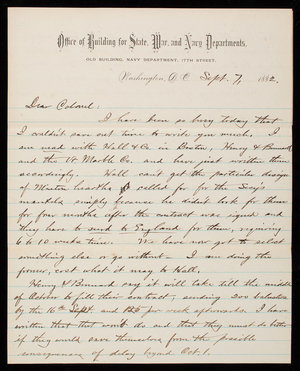 Office of Building for State, War, and Navy Departments.
OLD BUILDING, NAVY DEPARTMENT, 17TH STREET,
Washington, D. C. Sept. 7, 1882.
Dear Colonel:
I have been so busy today that
I couldn't save out time to write you much. I
am mad with Hall & Co. in Boston, Henry & Bonnard
and the Vt Marble Co. and have just written them
accordingly. Hall can't get the particular design
of Minton hearths I called for for the Secy's
mantels simply because he didn't look for them
for four months after the contract was signed and
they have to send to England for them, requiring
6 to 10 weeks time. We have now got to select
something else or go without - I am doing the
former, cost what it may to Hall.
Henry & Bonnard say it will take till the middle
of October to fill their contract, sending 200 balusters
by the 16th Sept. and 125 per week afterwards. I have
written that that won't do and that they must do better
if they would save themselves from the possible
consequences of delay beyond Oct. 1.